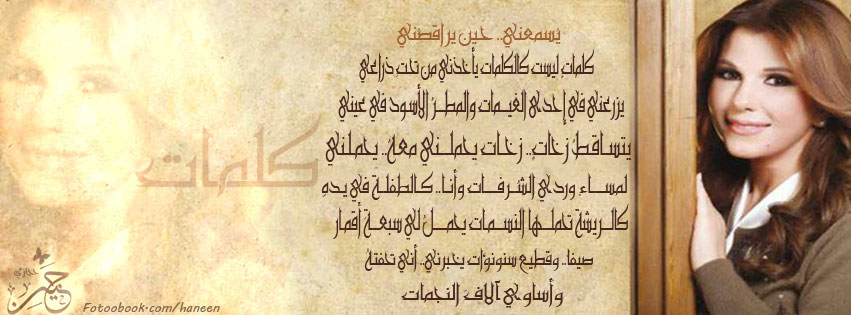 يسمعني.. حين يراقصني
كلمات ليست كالكلمات يأخذني من تحت ذراعي
يزرعني في إحدى الغيمات والمطر الأسود في عيني
يتساقط زخات.. زخات يحملني معه.. يحملني
لمساء وردي الشرفات وأنا.. كالطفلة في يده
كالريشة تحملها النسمات يحمل لي سبعة أقمار
صيفا.. وقطيع سنونوات يخبرني.. أني تحفته
وأساوي آلاف النجمات
كلمات
Fotoobook.com/haneen